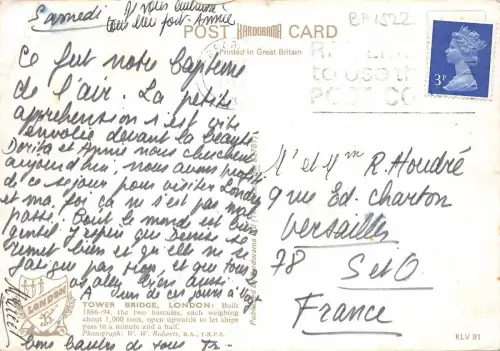 Samedi
Je vous embrasse
tous bien fort. Annie
POST HARDORAMA CARD
Printed in Great Britain
BP 1522
3P
Ce fut notre bapteme
de l'air. La petite
apprehension s'est vite
envolée devant la beauté
Dorita et Annie nous cherchent
aujourd'hui, nous avons profité
de ce sejour pour visiter Londres
et ma foi ça ne s'est pas mal
passé. Tout le monde est bien
gentil. J'espere que Denise se
remet bien et qu'elle ne se
fatigue pas trop, et que tous
vous allez bien aussi.
A un de ces jours à
Bons baisers de tous
M' et Mm R. Houdré
9 rue Ed. charton
Versailles
78 S et O
France
LONDON
TOWER BRIDGE, LONDON: Built
1886-94, the two bascules, each weighing
about 1,000 tons, open upwards to let ships
pass in a minute and a half.
Photograph: W. W. Roberts, B.A., F.R.P.S.
KLV 91